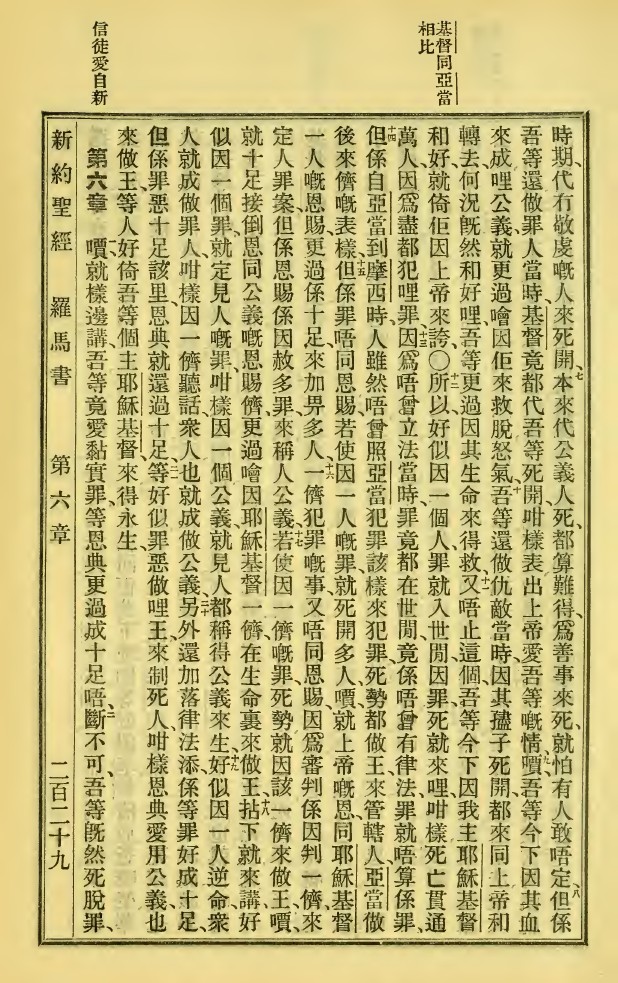 基督同亞當
相比
信徒愛自新
時期、代冇敬虔嘅人來死開、七本來代公義人死、都算難得、爲善事來死、就怕有人敢唔定、八但係
吾等還做罪人當時、基督竟都代吾等死開、咁樣表出上帝愛吾等嘅情、九嘳吾等今下因其血
來成哩公義、就更過噲因佢來救脫怒氣、十吾等還做仇敵當時、因其孻子死開、都來同上帝和
轉去、何況旣然和好哩、吾等更過因其生命來得救、十一又唔止這個、吾等今下因我主耶穌基督
和好、就倚佢因上帝來誇、〇十二所以好似因一個人、罪就入世間、因罪死就來哩、咁樣死亡貫通
萬人、因爲盡都犯哩罪、十三因爲唔曾立法當時、罪竟都在世間、竟係唔曾有律法、罪就唔算係罪、
十四但係自亞當到摩西時、人雖然唔曾照亞當犯罪該樣來犯罪、死勢都做王來管轄人、亞當做
後來儕嘅表樣、十五但係罪唔同恩賜、若使因一人嘅罪、就死開多人、嘳就上帝嘅恩、同耶穌基督
一人嘅恩賜、更過係十足、來加畀多人、十六一儕犯罪嘅事、又唔同恩賜、因爲審判係因判一儕、來
定人罪案、但係恩賜係因赦多罪、來稱人公義、十七若使因一儕嘅罪、死勢就因該一儕來做王、嘳
就十足接倒恩同公義嘅恩賜儕、更過噲因耶穌基督一儕、在生命裏來做王、十八拈下就來講、好
似因一個罪、就定見人嘅罪、咁樣因一個公義、就見人都稱得公義來生、十九好似因一人逆命、衆
人就成做罪人、咁樣因一儕聽話、衆人也就成做公義、二十另外還加落律法、添係等罪好成十足、
但係罪惡十足該里、恩典就還過十足、二一等好似罪惡做哩王、來制死人、咁樣恩典愛用公義、也
來做王、等人好倚吾等個主耶穌基督、來得永生、
第六章 一嘳就樣邊講、吾等竟愛黏實罪、等恩典更過成十足、二唔斷不可、吾等旣然死脫罪、
新約聖經 羅馬書 第六章 二百二十九